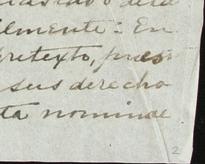 ilmente: En
pretexto, pues
sus derecho
ta nominde
2